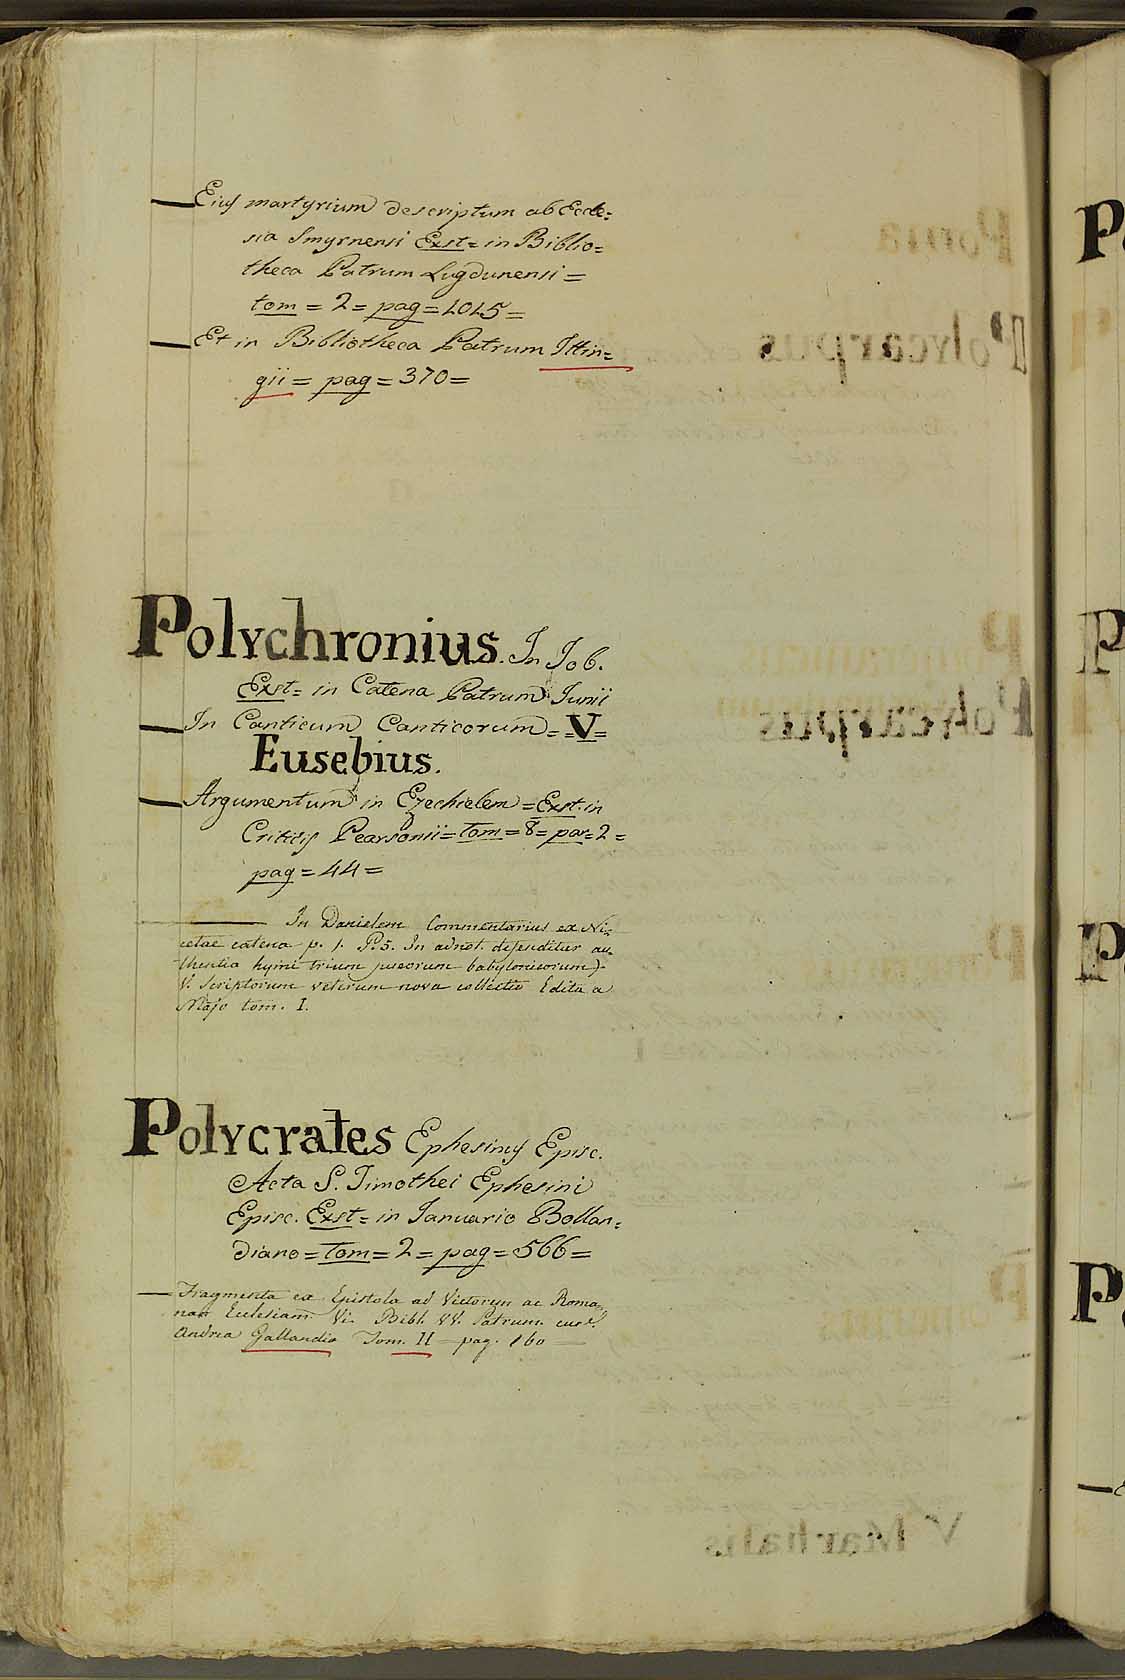 — Eius martyrium descriptum ab Eccle=
sia Smyrnensi Exst= in Biblio=
theca Patrum Lugdunensi =
tom = 2 = pag = 1015 =
— Et in Bibliotheca Patrum Ittin=
gii = pag = 370 =
Polychronius. In Job.
Exst= in Catena Patrum Junii
— In Canticum Canticorum = V =
Eusebius.
— Argumentum in Ezechielem = Exst. in
Criticis Pearsonii = tom = 8 = par = 2 =
pag = 44 =
— In Danielem Commentarius ex Ni=
cetae catena p. 1. P. 5. In adnot. defenditur au=
thentia hymni trium puerorum babylonicorum).
V. Scriptorum veterum nova collectio Edita a
Majo tom. I.
Polycrates Ephesinus Episc.
Acta S. Timothei Ephesini
Episc. Exst = in Januario Bollan=
diano = tom = 2 = pag = 566 =
— Fragmenta ex Epistola ad Victorem ac Roma=
nam Ecclesiam. Bibl. VV. Patrum
Andrea Gallandio Tom. II — pag. 160 —